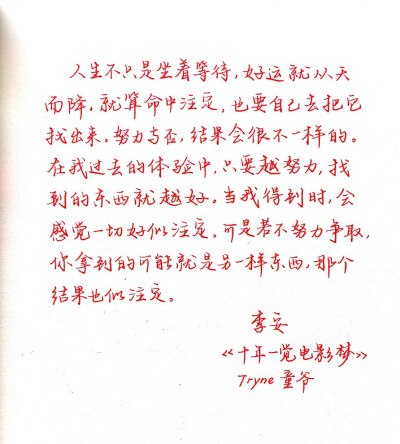 人生不只是坐着等待，好运就从天
而降。就算命中注定，也要自己去把它
找出来。努力与否，结果会很不一样的。
在我过去的体验中，只要越努力，找
到的东西就越好。当我得到时，会
感觉一切好似注定。可是若不努力争取，
你拿到的可能就是另一样东西，那个
结果也似注定。
李安
《十年一觉电影梦》
Tryne 童爷